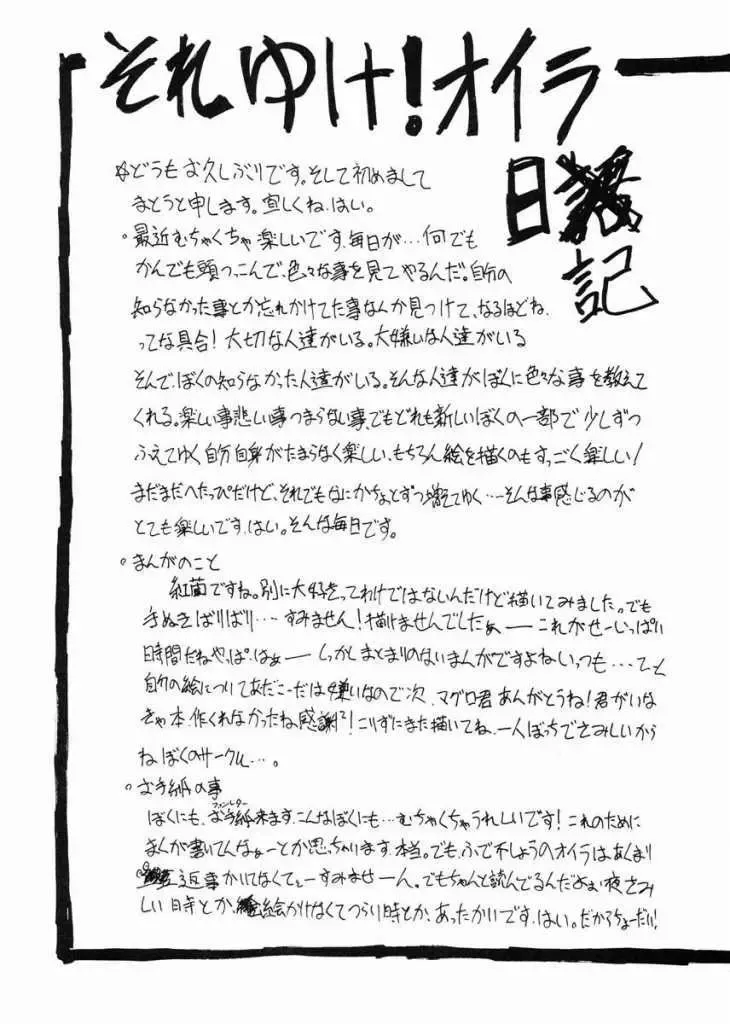 それゆけ！オイラ
日記
☆どうもお久しぶりです。そして初めまして
まとうと申します。宜しくね。はい。
・最近むちゃくちゃ楽しいです、毎日が…何でも
かんでも頭つっこんで、色々な事を見てやるんだ。自分の
知らなかった事とか忘れかけてた事なんか見つけて、なるほどね、
ってな具合！大切な人達がいる。大嫌いな人達がいる
そんで、ぼくの知らなかった人達がいる。そんな人達がぼくに色々な事を教えて
くれる。楽しい事悲しい事つまらない事、でもどれも新しいぼくの一部で少しずつ
ふえてゆく自分自身がたまらなく楽しい、もちろん絵を描くのもすっごく楽しい！
まだまだへたっぴだけど、それでもなにかちょっとずつ増えてゆく…そんな事感じるのが
とても楽しいです、はい。そんな毎日です。
・まんがのこと
紅蘭ですね。別に大好きってわけではないんだけど描いてみました。でも
手ぬきばりばり…すみません！描けませんでしたぁー これがせーいっぱい
時間だねやっぱ、はぁー しっかしまとまりのないまんがですよねいっつも…てーと
自分の絵についてあだこーだは嫌いなので次、マグロ君あんがとうね！君がいな
きゃ本、作くれなかったね、感謝！こりずにまた描いてね、一人ぼっちでさみしいから
ねぼくのサークル…。
・お手紙の事
ぼくにも、お手紙(ファンレター)来ます、こんなぼくにも…むちゃくちゃうれしいです！これのために
まんが書いてんなぁーとか思っちゃいます、本当。でも、ふで不しょうのオイラは、あんまり
返事かいてなくてぇーすみませーん。でもちゃんと読んでるんだよぉ、夜さみ
しい日寺とか、絵かけなくてつらい時とか、あったかいです、はい。だからちょーだい！